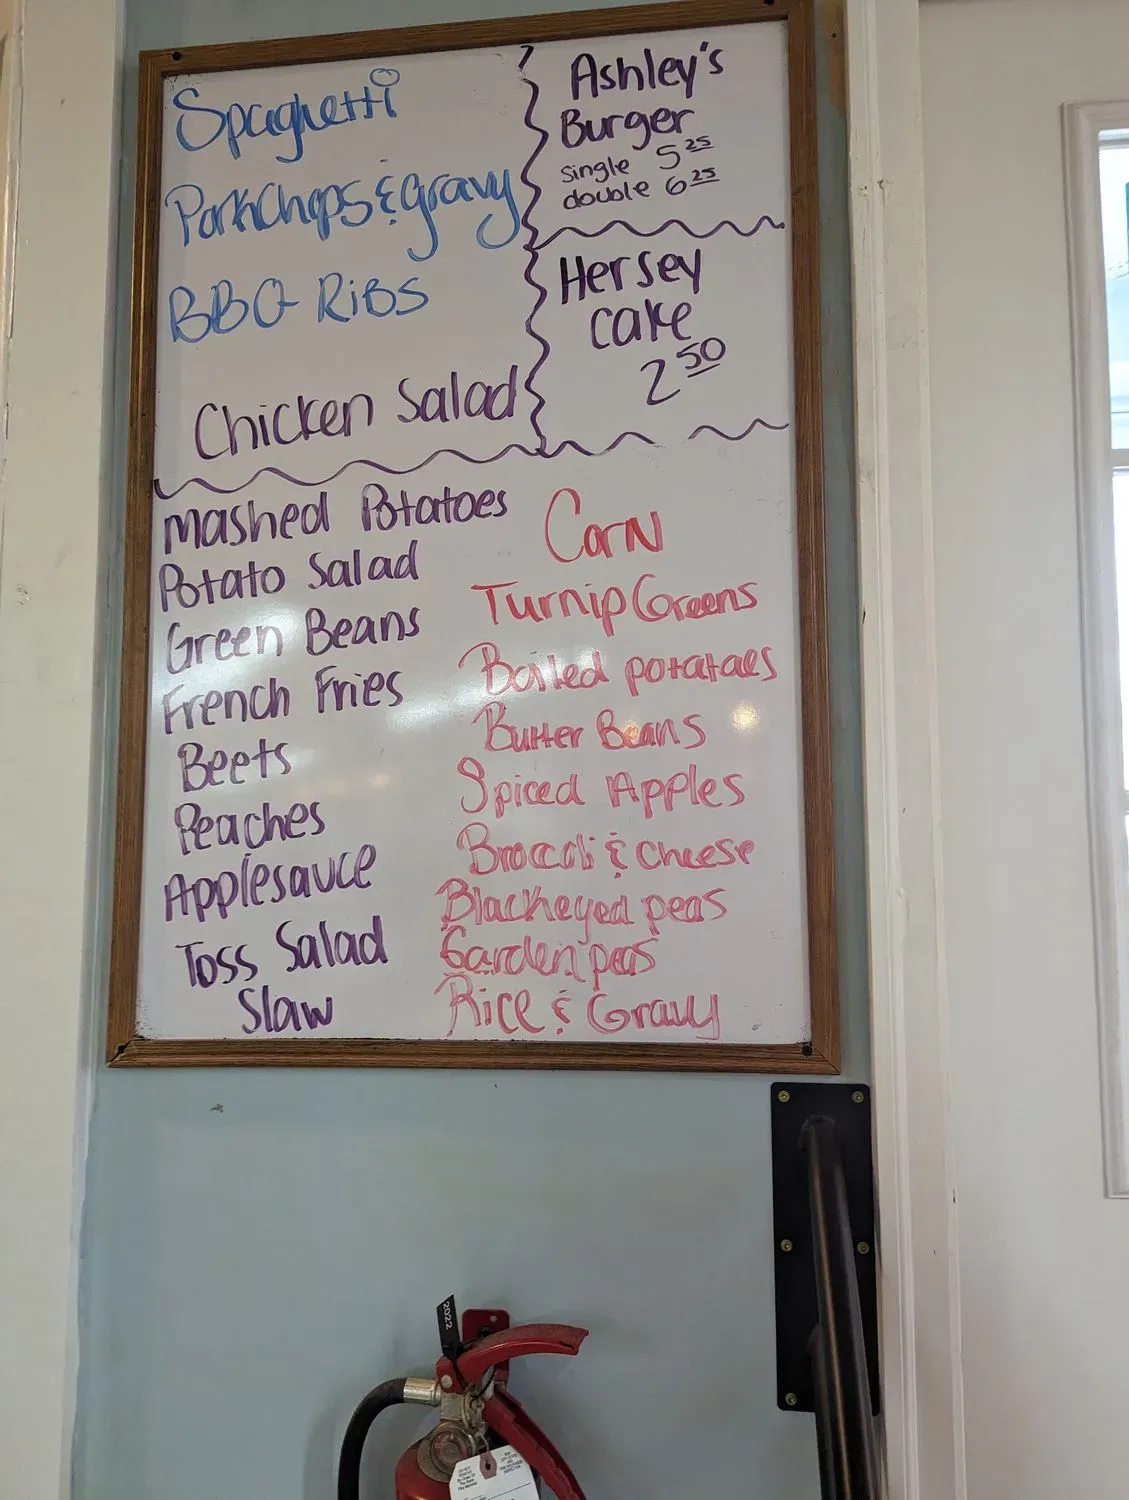 Spaghetti
PorkChops & gravy
BBQ Ribs
Chicken Salad
Ashley's
Burger
single 5 25
double 6 25
Hersey
Cake
2 50
Mashed Potatoes
Potato Salad
Green Beans
French Fries
Beets
Peaches
Applesauce
Toss Salad
Slaw
Corn
Turnip Greens
Boiled potatoes
Butter Beans
Spiced Apples
Broccoli & cheese
Blackeyed peas
Garden peas
Rice & Gravy
2022